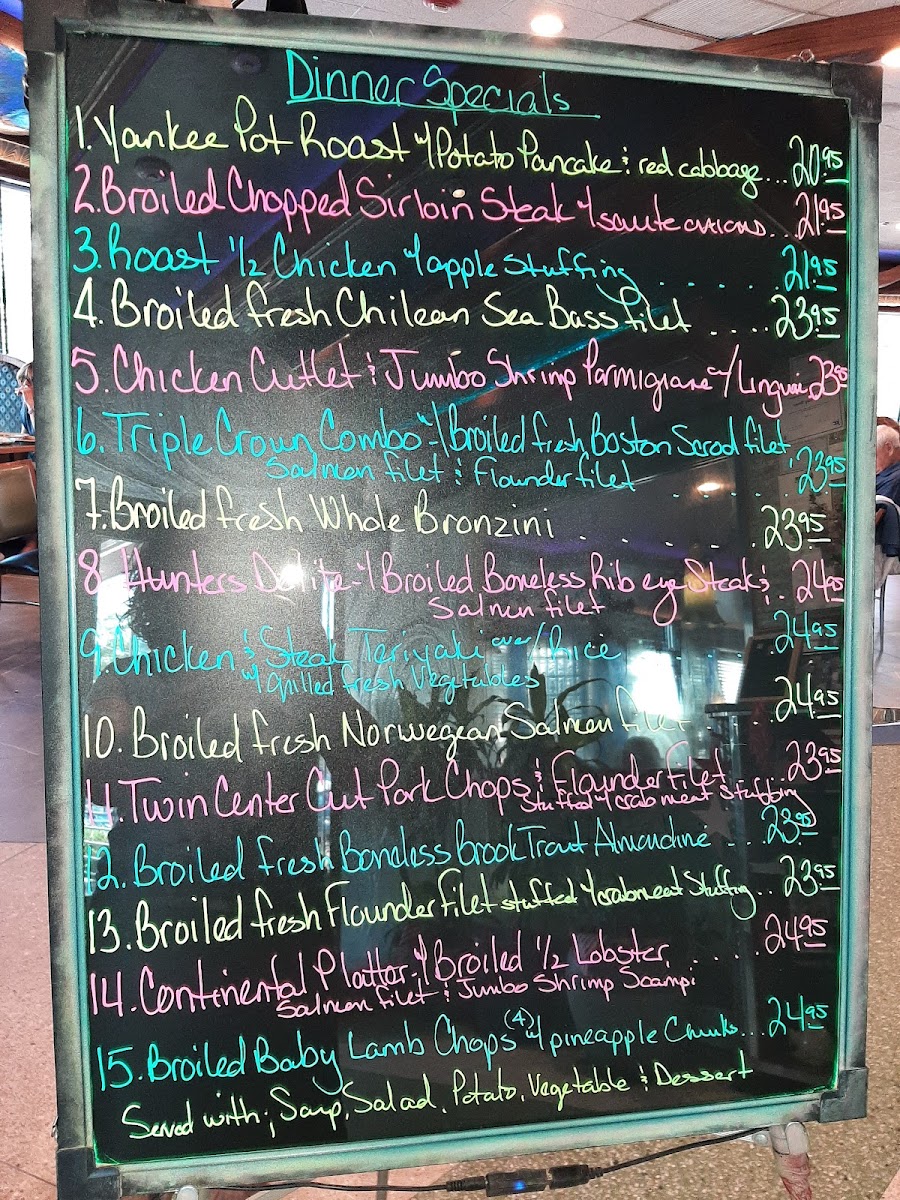 Dinner Specials
1. Yankee Pot Roast w/ Potato Pancake & red cabbage... 20.95
2. Broiled Chopped Sirloin Steak w/ saute onions.. 21.95
3. Roast 1/2 Chicken w/ apple Stuffing . . . . . . 21.95
4. Broiled fresh Chilean Sea Bass filet ..... 23.95
5. Chicken Cutlet & Jumbo Shrimp Parmigiane w/ Linguini 23.95
6. Triple Crown Combo w/ Broiled fresh Boston Scrod filet,
Salmon filet & Flounder filet . . . . . 23.95
7. Broiled fresh Whole Bronzini . . . . . . 23.95
8. Hunters Delite w/ Broiled Boneless Rib eye Steak & .. 24.95
Salmon filet
9. Chicken & Steak Teriyaki over/ Rice . . . . 24.95
w/ grilled fresh Vegetables
10. Broiled fresh Norwegean Salmon filet . . . 24.95
11. Twin Center Cut Pork Chops & Flounder Filet ... 23.95
Stuffed w/ crab meat Stuffing
12. Broiled fresh Boneless Brook Traut Almondine ... 23.95
13. Broiled fresh Flounder Filet stuffed w/ crabmeat Stuffing .. 23.95
14. Continental Plattar w/ Broiled 1/2 Lobster, . . . . . 24.95
Salmon filet & Jumbo Shrimp Scampi
15. Broiled Baby Lamb Chops (4) w/ pineapple Chunks... 24.95
Served with; Soup, Salad, Potato, Vegetable & Dessert